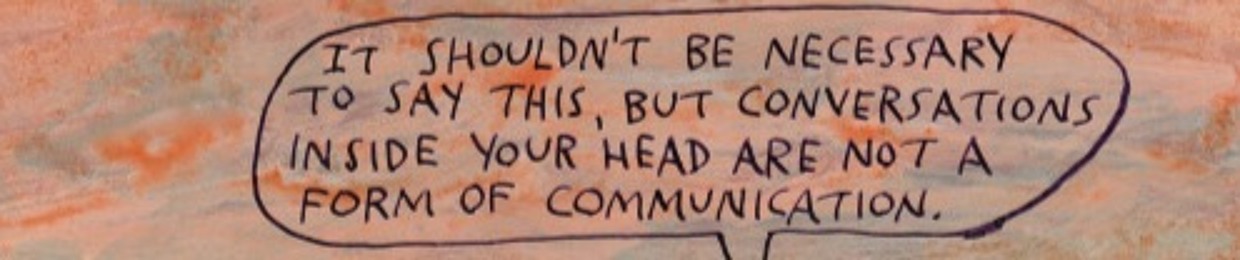 IT SHOULDN'T BE NECESSARY
TO SAY THIS, BUT CONVERSATIONS
INSIDE YOUR HEAD ARE NOT A
FORM OF COMMUNICATION.